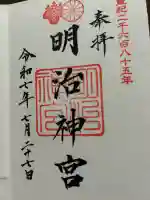 皇紀二千六百八十五年
奉拝
明治神宮
令和七年七月二十七日